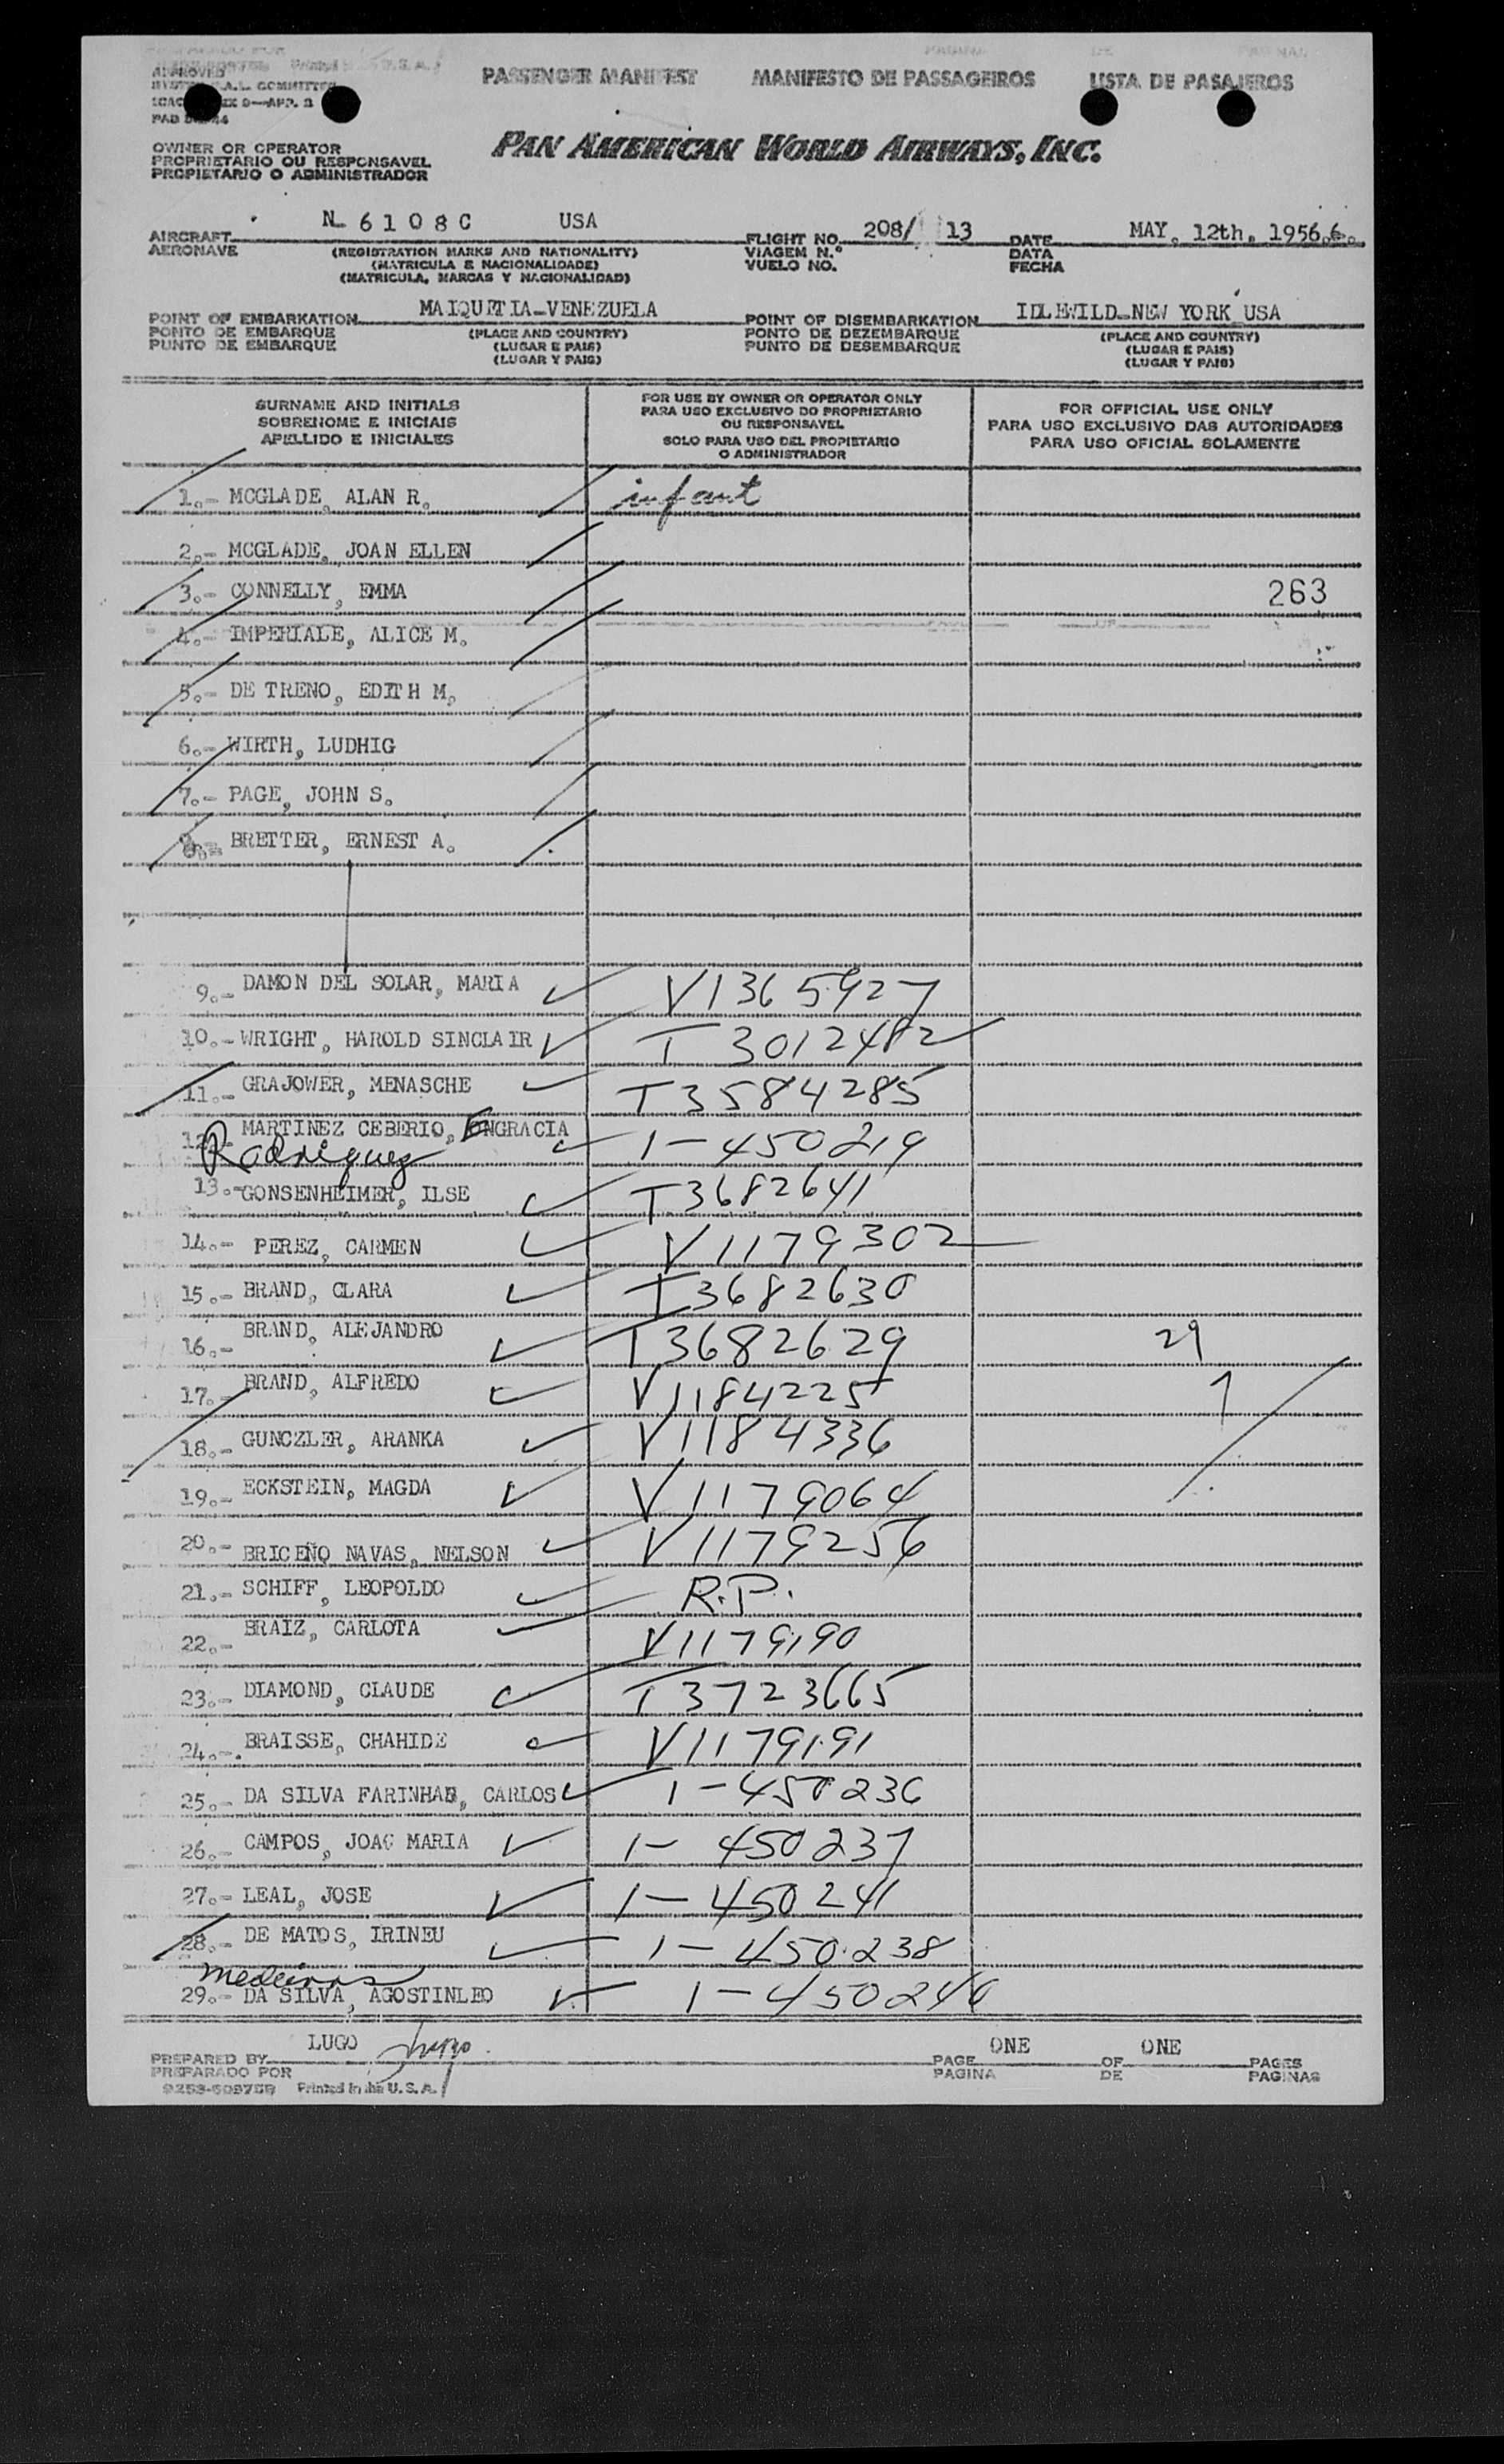 APPROVED
PASSENGER MANIFEST MANIFESTO DE PASSAGEIROS LISTA DE PASAJEROS
PAN AMERICAN WORLD AIRWAYS, INC.
OWNER OR OPERATOR
PROPRIETARIO OU RESPONSAVEL
PROPIETARIO O ADMINISTRADOR
AIRCRAFT N-6108C USA FLIGHT NO. 208/ 13 DATE MAY. 12th. 1956.
AERONAVE (REGISTRATION MARKS AND NATIONALITY) VIAGEM N.º DATA
(MATRICULA E NACIONALIDADE) VUELO NO. FECHA
(MATRICULA, MARCAS Y NACIONALIDAD)
POINT OF EMBARKATION MAIQUETIA-VENEZUELA POINT OF DISEMBARKATION IDLEWILD-NEW YORK USA
PONTO DE EMBARQUE (PLACE AND COUNTRY) PONTO DE DEZEMBARQUE (PLACE AND COUNTRY)
PUNTO DE EMBARQUE (LUGAR E PAIS) PUNTO DE DESEMBARQUE (LUGAR E PAIS)
(LUGAR Y PAIS) (LUGAR Y PAIS)
SURNAME AND INITIALS FOR USE BY OWNER OR OPERATOR ONLY FOR OFFICIAL USE ONLY
SOBRENOME E INICIAIS PARA USO EXCLUSIVO DO PROPRIETARIO PARA USO EXCLUSIVO DAS AUTORIDADES
APELLIDO E INICIALES OU RESPONSAVEL PARA USO OFICIAL SOLAMENTE
SOLO PARA USO DEL PROPIETARIO
O ADMINISTRADOR
1.- MCGLADE, ALAN R. infant
2.- MCGLADE, JOAN ELLEN
3.- CONNELLY, EMMA 263
4.- IMPERIALE, ALICE M.
5.- DE TRENO, EDITH M.
6.- WIRTH, LUDHIG
7.- PAGE, JOHN S.
8.- BRETTER, ERNEST A.
9.- DAMON DEL SOLAR, MARIA V1365927
10.- WRIGHT, HAROLD SINCLAIR T 3012482
11.- GRAJOWER, MENASCHE T3584285
12.- MARTINEZ CEBERIO, ENGRACIA 1-450219
Rodriguez
13.- GONSENHEIMER, ILSE T3682641
14.- PEREZ, CARMEN V1179302
15.- BRAND, CLARA T3682630
16.- BRAND, ALEJANDRO T3682629 29
17.- BRAND, ALFREDO V1184225 1
18.- GUNCZLER, ARANKA V1184336
19.- ECKSTEIN, MAGDA V1179064
20.- BRICEÑO NAVAS, NELSON V1179256
21.- SCHIFF, LEOPOLDO R.P.
22.- BRAIZ, CARLOTA V1179190
23.- DIAMOND, CLAUDE T3723665
24.- BRAISSE, CHAHIDE V1179191
25.- DA SILVA FARINHAS, CARLOS 1-450236
26.- CAMPOS, JOAO MARIA 1-450237
27.- LEAL, JOSE 1-450241
28.- DE MATOS, IRINEU 1-450238
medeiros
29.- DA SILVA, AGOSTINLEO 1-450240
PREPARED BY LUGO Lugo PAGE ONE OF ONE PAGES
PREPARADO POR PAGINA DE PAGINAS
Printed in the U.S.A.